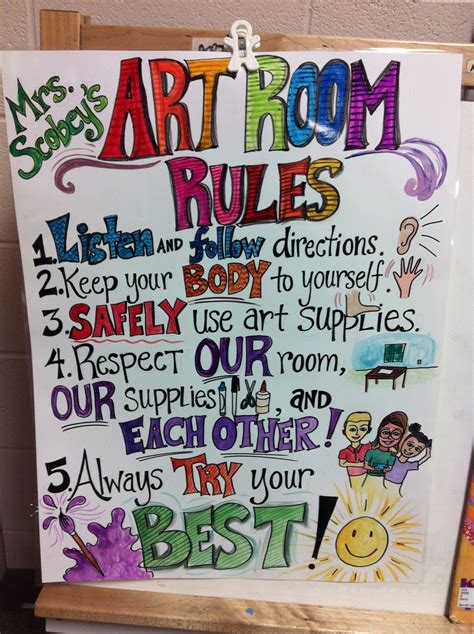 Mrs.
Scobey's
ART ROOM
RULES
1. Listen AND follow directions.
2. Keep your BODY to yourself.
3. SAFELY use art supplies.
4. Respect OUR room,
OUR supplies, and
EACH OTHER!
5. Always TRY your
BEST!